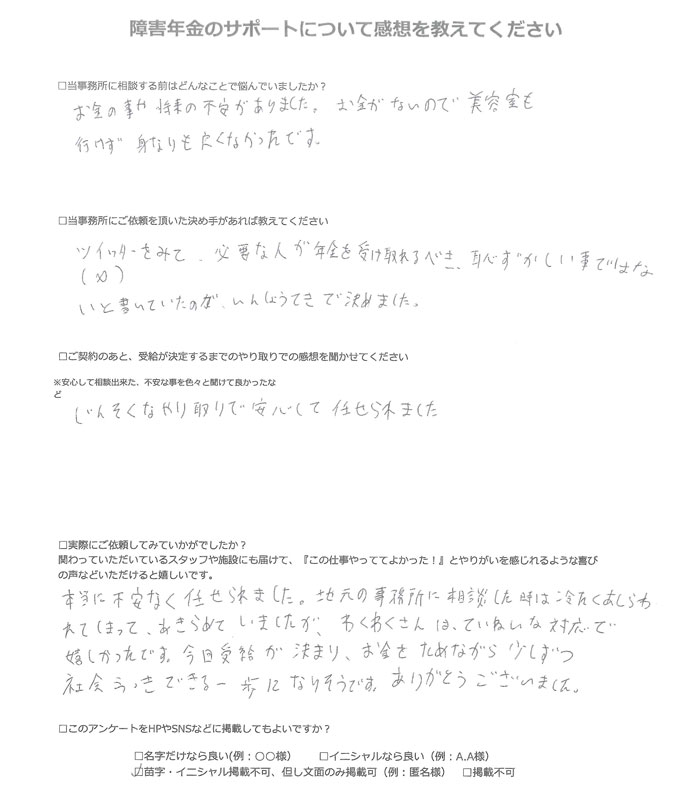 障害年金のサポートについて感想を教えてください
□当事務所に相談する前はどんなことで悩んでいましたか？
お金の事や将来の不安がありました。お金がないので美容室も
行けず身なりも良くなかったです。
□当事務所にご依頼を頂いた決め手があれば教えてください
ツイッターをみて、必要な人が年金を受け取れるべき、恥ずかしい事ではな
(X)
いと書いていたのが、いんしょうてきで決めました。
□ご契約のあと、受給が決定するまでのやり取りでの感想を聞かせてください
※安心して相談出来た、不安な事を色々と聞けて良かったな
ど
じんそくなやり取りで安心して任せられました
□実際にご依頼してみていかがでしたか？
関わっていただいているスタッフや施設にも届けて、『この仕事やっててよかった！』とやりがいを感じれるような喜び
の声などいただけると嬉しいです。
本当に不安なく任せられました。地元の事務所に相談した時は冷たくあしらわ
れてしまって、あきらめていましたが、わくわくさんは、ていねいな対応で
嬉しかったです。今日受給が決まり、お金をためながら少しずつ
社会ふっきできる一歩になりそうです。ありがとうございました。
□このアンケートをHPやSNSなどに掲載してもよいですか？
□名字だけなら良い(例：〇〇様）　□イニシャルなら良い（例：A.A様）
☑苗字・イニシャル掲載不可、但し文面のみ掲載可（例：匿名様）　□掲載不可